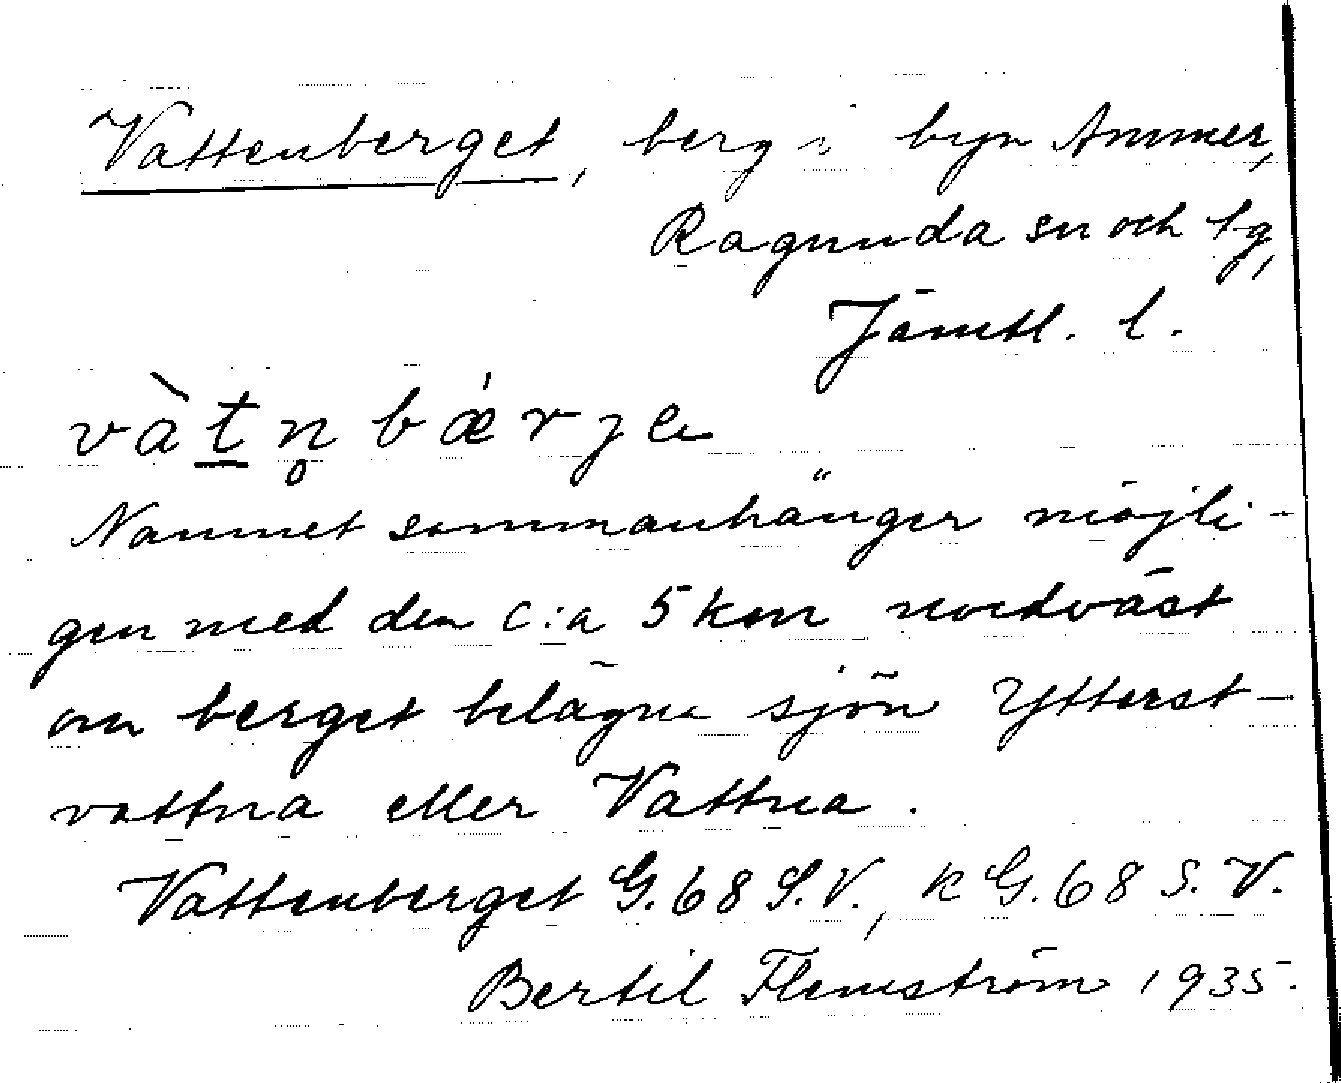 Vattenberget, berg i byn Ammer,
Ragunda sn och tg,
Jämtl. l.
vàt̠n̥bǽrje
Namnet sammanhänger möjli-
gen med den c:a 5 km nordväst
om berget belägna sjön Ytterst-
vattna eller Vattna.
Vattenberget G.68 S.V., k G.68 S.V.
Bertil Flemström 1935.